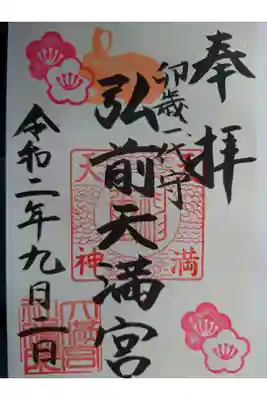 奉拝
卯歳一代守
弘前天満宮
令和二年九月二日
天満
天神